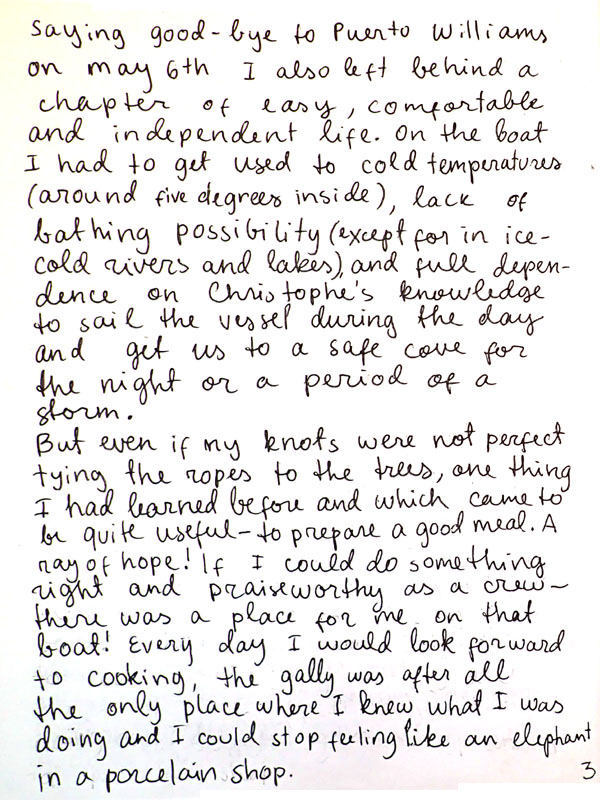 Saying good-bye to Puerto Williams
on may 6th I also left behind a
chapter of easy, comfortable
and independent life. On the boat
I had to get used to cold temperatures
(around five degrees inside), lack of
bathing possibility (except for in ice-
cold rivers and lakes), and full depen-
dence on Christophe's knowledge
to sail the vessel during the day
and get us to a safe cove for
the night or a period of a
storm.
But even if my knots were not perfect
tying the ropes to the trees, one thing
I had learned before and which came to
be quite useful - to prepare a good meal. A
ray of hope! If I could do something
right and praiseworthy as a crew -
there was a place for me on that
boat! Every day I would look forward
to cooking, the gally was after all
the only place where I knew what I was
doing and I could stop feeling like an elephant
in a porcelain shop.
3